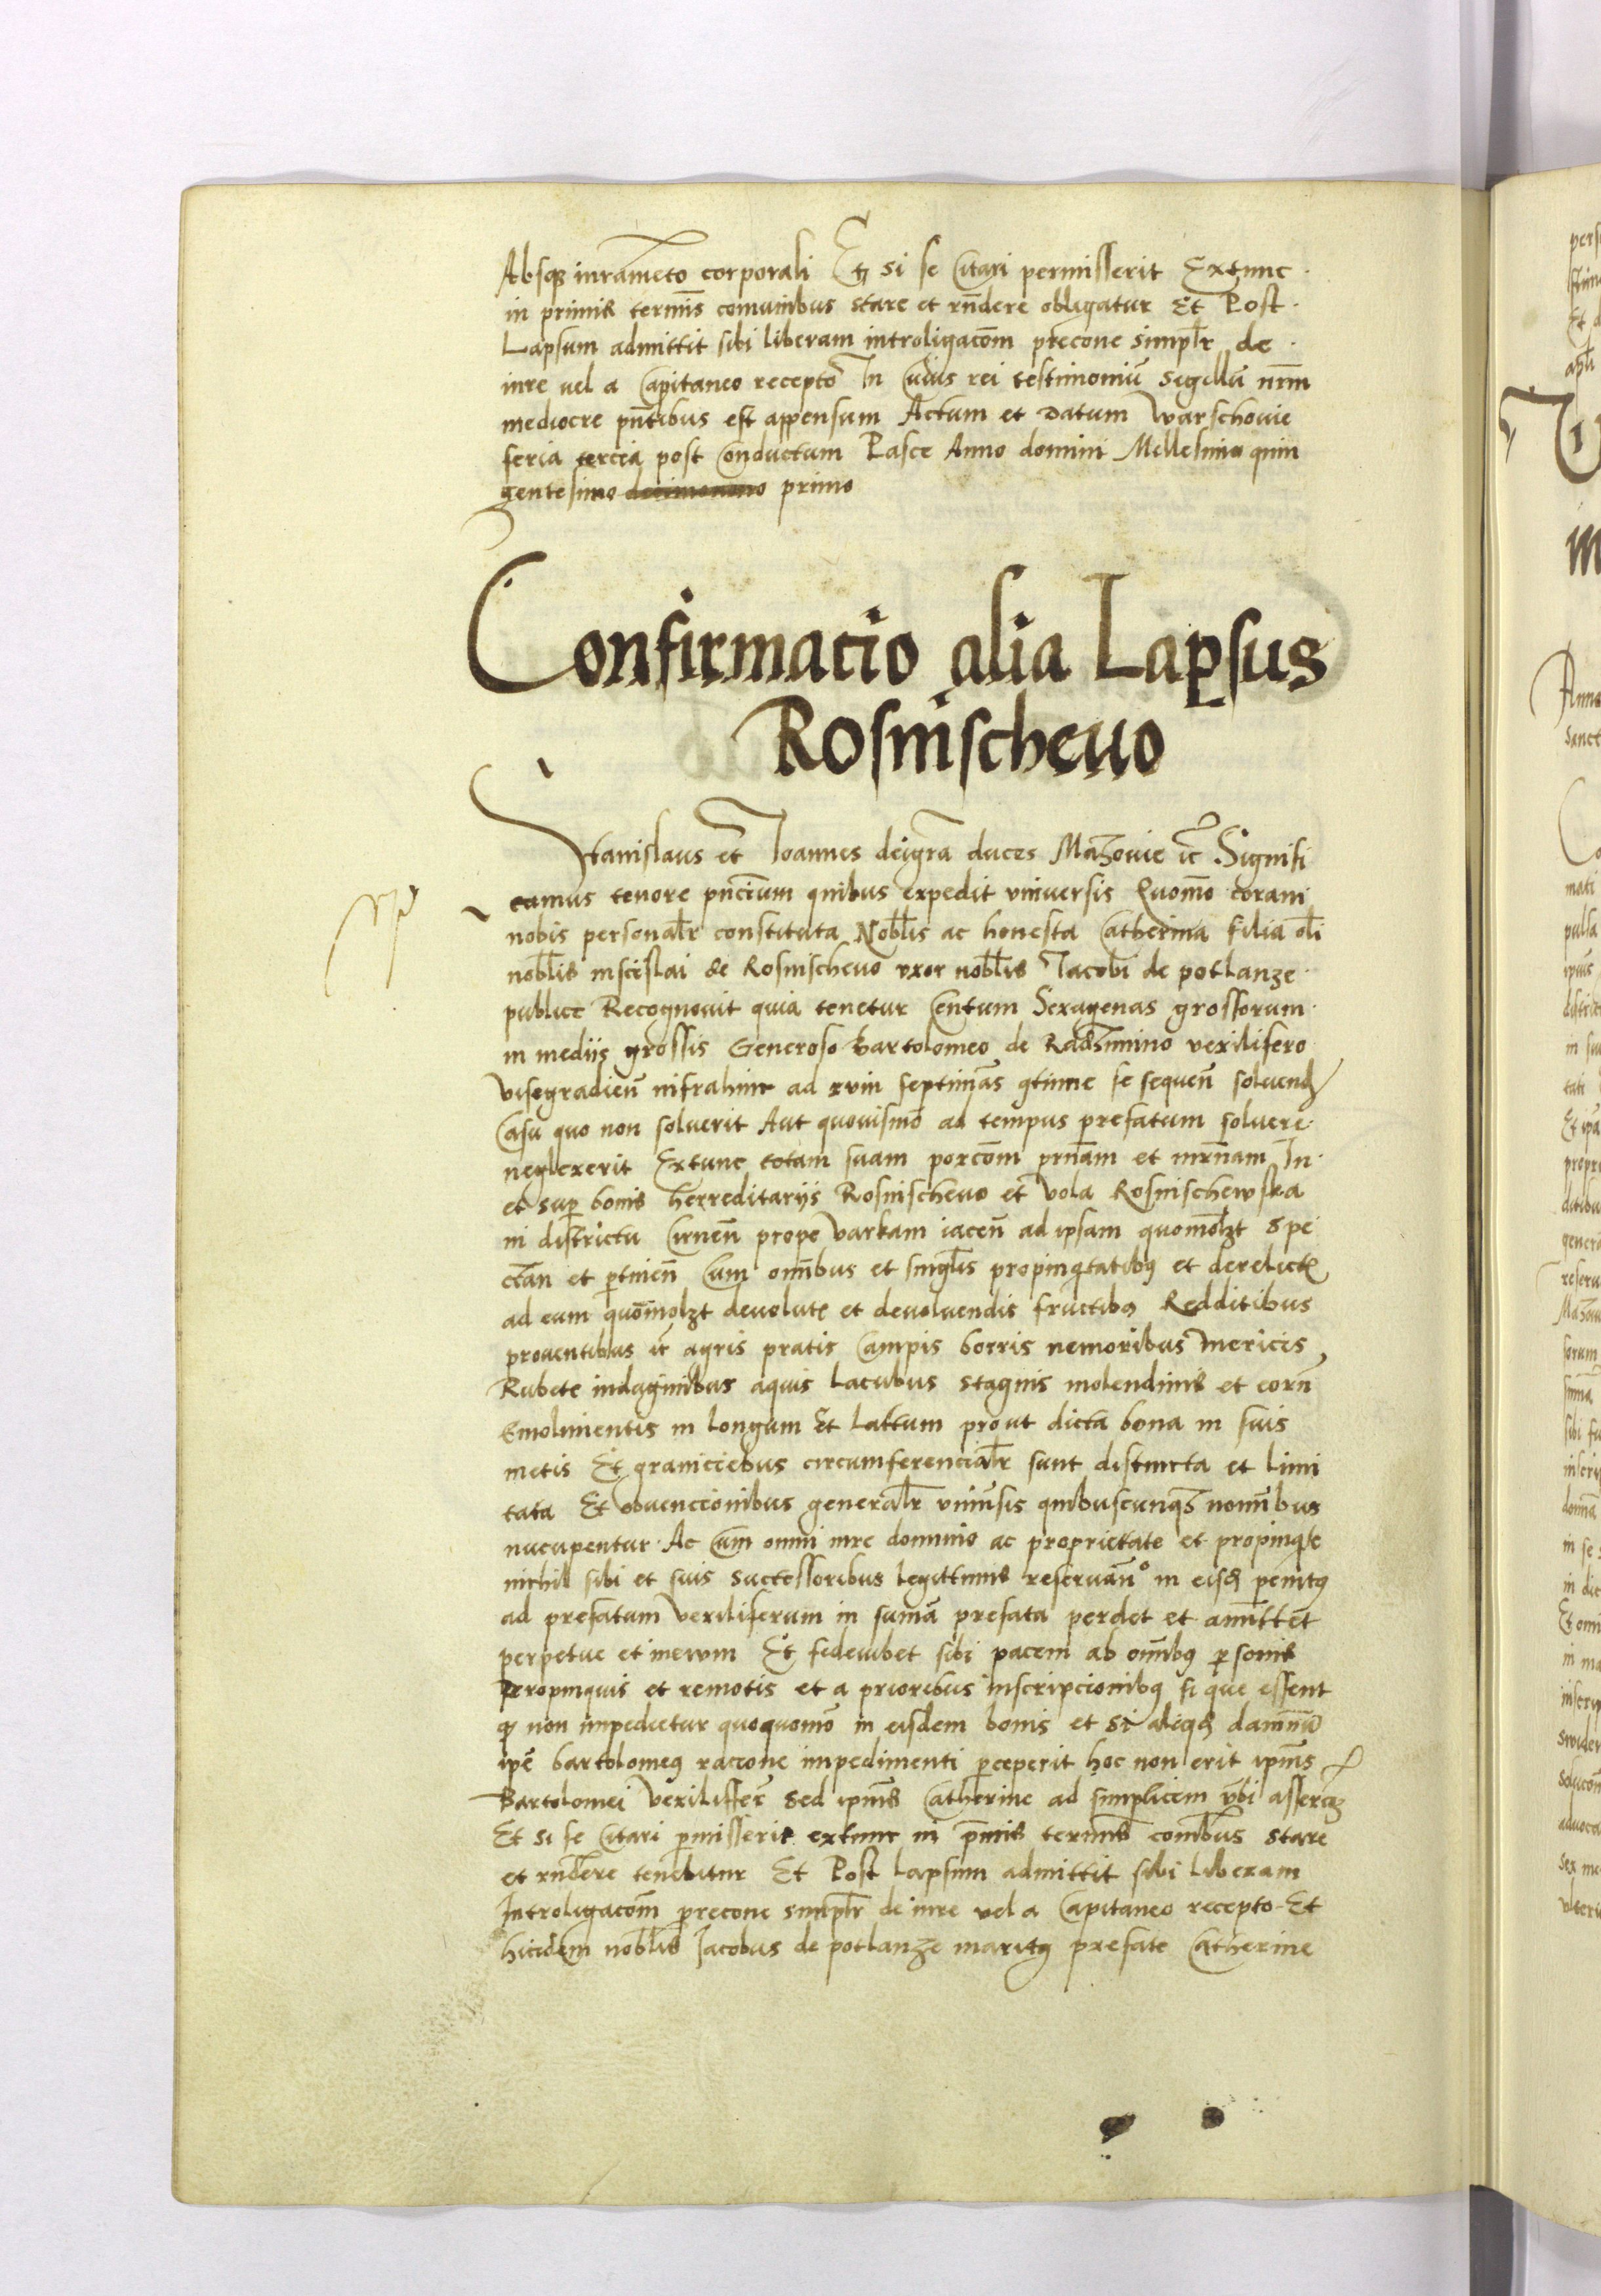 Absq3 iurameto corporali Et si se Citari permisserit Extunc
in primis termis comunibus stare et rndere obligatur Et Post
Lapsum admittit sibi liberam introligacom precone simplr de
iure uel a Capitaneo recepto In Cuius rei testimoniu Sigillu nrm
mediocre pntibus est appensum Actum et Datum Warschouie
feria tercia post Conductum Pasce Anno domini Millesimo quin
gentesimo primo
Confirmacio alia Lapsus
Rosnischeuo
Stanislaus et Joannes deigra duces Mazouie etc Signifi
camus tenore pncium quibus expedit vniuersis Quomo coram
nobis personalr constituta Noblis ac honesta Catherina filia oli
noblis mscislai de Rosnischeuo vxor noblis Jacobi de potlanze
publice Recognouit quia tenetur Centum Sexagenas grossorum
in mediis grossis Generoso Bartolomeo de Radzimino vexilifero
visegradien infrahinc ad xviii septimas qtinue se sequen soluend
Casu quo non soluerit Aut quouismo ad tempus prefatum soluere
neglexerit Extunc totam suam porcom prnam et mrnam In
et super bonis herreditariis Rosnischeuo et vola Rosnischewska
in districtu Cirnen prope varkam iacen ad ipsam quomolzt spe
ctan et ptinen Cum omnibus et singlis propinqtatibus et derelictis
ad eum quomolzt deuolutis et deuoluendis fructibus Redditibus
prouentibus etc agris pratis Campis borris nemoribus Mericis
Rubetis indaginibus aquis Lacubus stagnis molendinis et eorn
Emolimentis in longum Et Lattum prout dicta bona in suis
metis Et graniciebus circumferencialr sunt distincta et Limi
tata Et obuenccionibus generalr vniusis quibuscunq3 nominibus
nucupentur Ac Cum omni iure dominio ac proprietate et propinqte
nichil sibi et suis successoribus legittimis reseruando in eisd penitus
ad prefatum vexiliferum in suma prefata perdet et amittet
perpetue et in ewm Et fedeiubet sibi pacem ab omnibus personis
Propinquis et remotis et a prioribus inscripcionibus si que essent
q non impedietur quoquomo in eisdem bonis et si aliqd damnu
ipe bartolomeus racione impedimenti perceperit hoc non erit ipius
Bartolomei vexilifferi sed ipius Catherine ad simplicem vbi assercoz
Et si se Citari pmisserit extunc in pmis termis comibus stare
et rndere tenebitur Et Post lapsum admittit sibi liberam
Introligacom precone simplr de iure uel a Capitaneo recepto Et
hicidem noblis Jacobus de potlanze maritus prefate Catherine